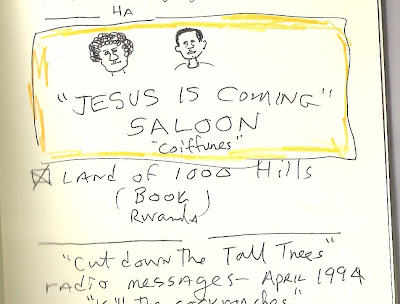 HA
"JESUS IS COMING"
SALOON
"Coiffures"
LAND OF 1000 Hills
(BOOK)
Rwanda
"Cut down The Tall Trees"
radio messages - APRIL 1994